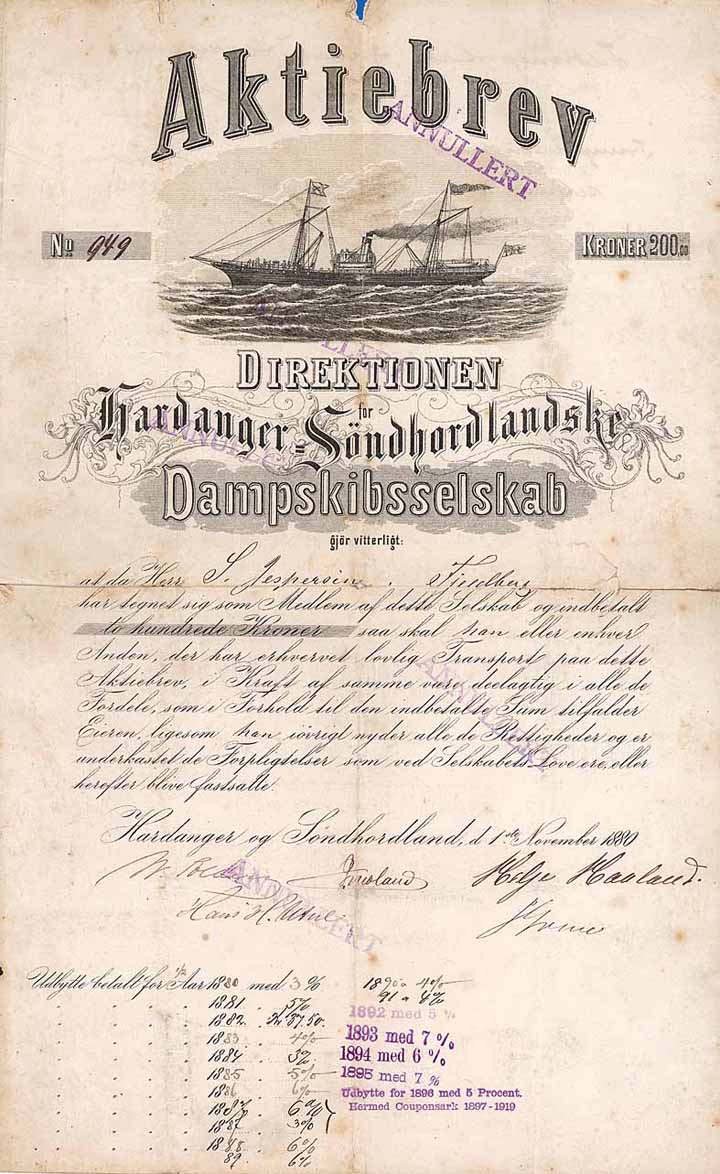 Aktiebrev
ANNULLERT
No 949
KRONER 200.00
DIREKTIONEN
for
Hardanger-Söndhordlandske
ANNULLERT
ANNULLERT
Dampskibsselskab
gjör vitterligt:
at da Herr S. Jespersen
har tegnet sig som Medlem af dette Selskab og indbetalt
to hundrede Kroner saa skal han eller enhver
Anden, der har erhvervet lovlig Transport paa dette
Aktiebrev, i Kraft af samme være deelagtig i alle de
Fordele, som i Forhold til den indbetalte Sum tilfalder
Eieren, ligesom han iövrigt nyder alle de Rettigheder og er
underkastet de Forpligtelser som ved Selskabets Love ere, eller
herefter blive fastsatte.
ANNULLERT
Hardanger og Söndhordland, d 1ste November 1880
Helje Haaland.
Hans H.
ANNULLERT
Udbytte betalt for 1/2 Aar 1880 med 3 %
1881 . 5%
1882 . 37.50.
1883 . 4%
1884 . 3%
1885 . 5%
1886 . 6%
1887 6%
1887 . 3%
1888 . 6%
89 . 6%
1890 a 4%
91 a 4%
1892 med 5 %
1893 med 7 %
1894 med 6 %
1895 med 7 %
Udbytte for 1896 med 5 Procent.
Hermed Couponsark 1897-1919